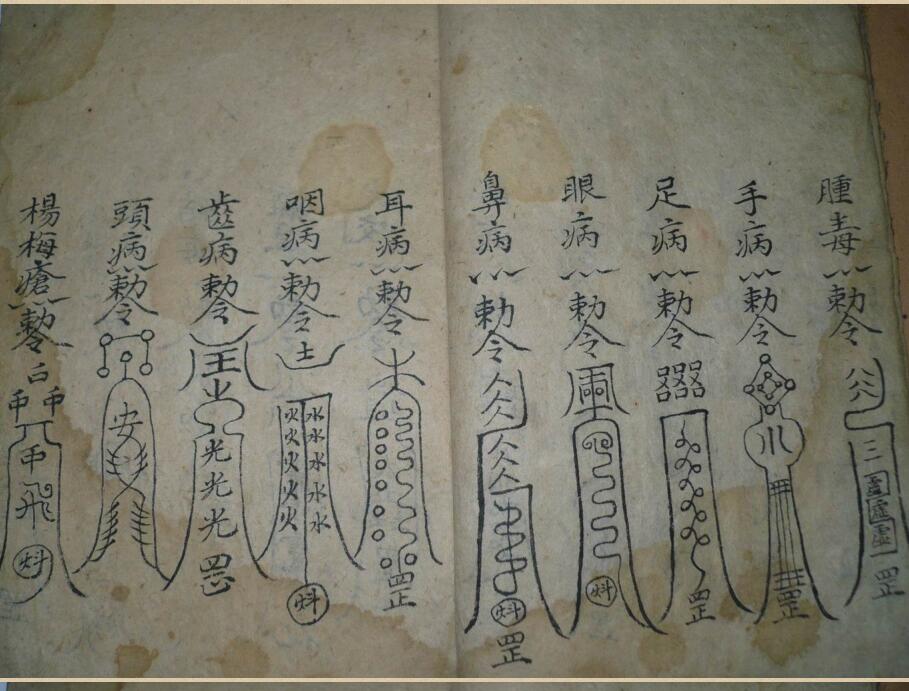 腫毒 勅令 三 罡
手病 勅令 川 罡
足病 勅令 罡
眼病 勅令
鼻病 勅令 罡
耳病 勅令 罡
咽病 勅令 士 火火火火火 水水水水水
齒病 勅令 光光光
頭病 勅令 安
楊梅瘡 勅令 飛